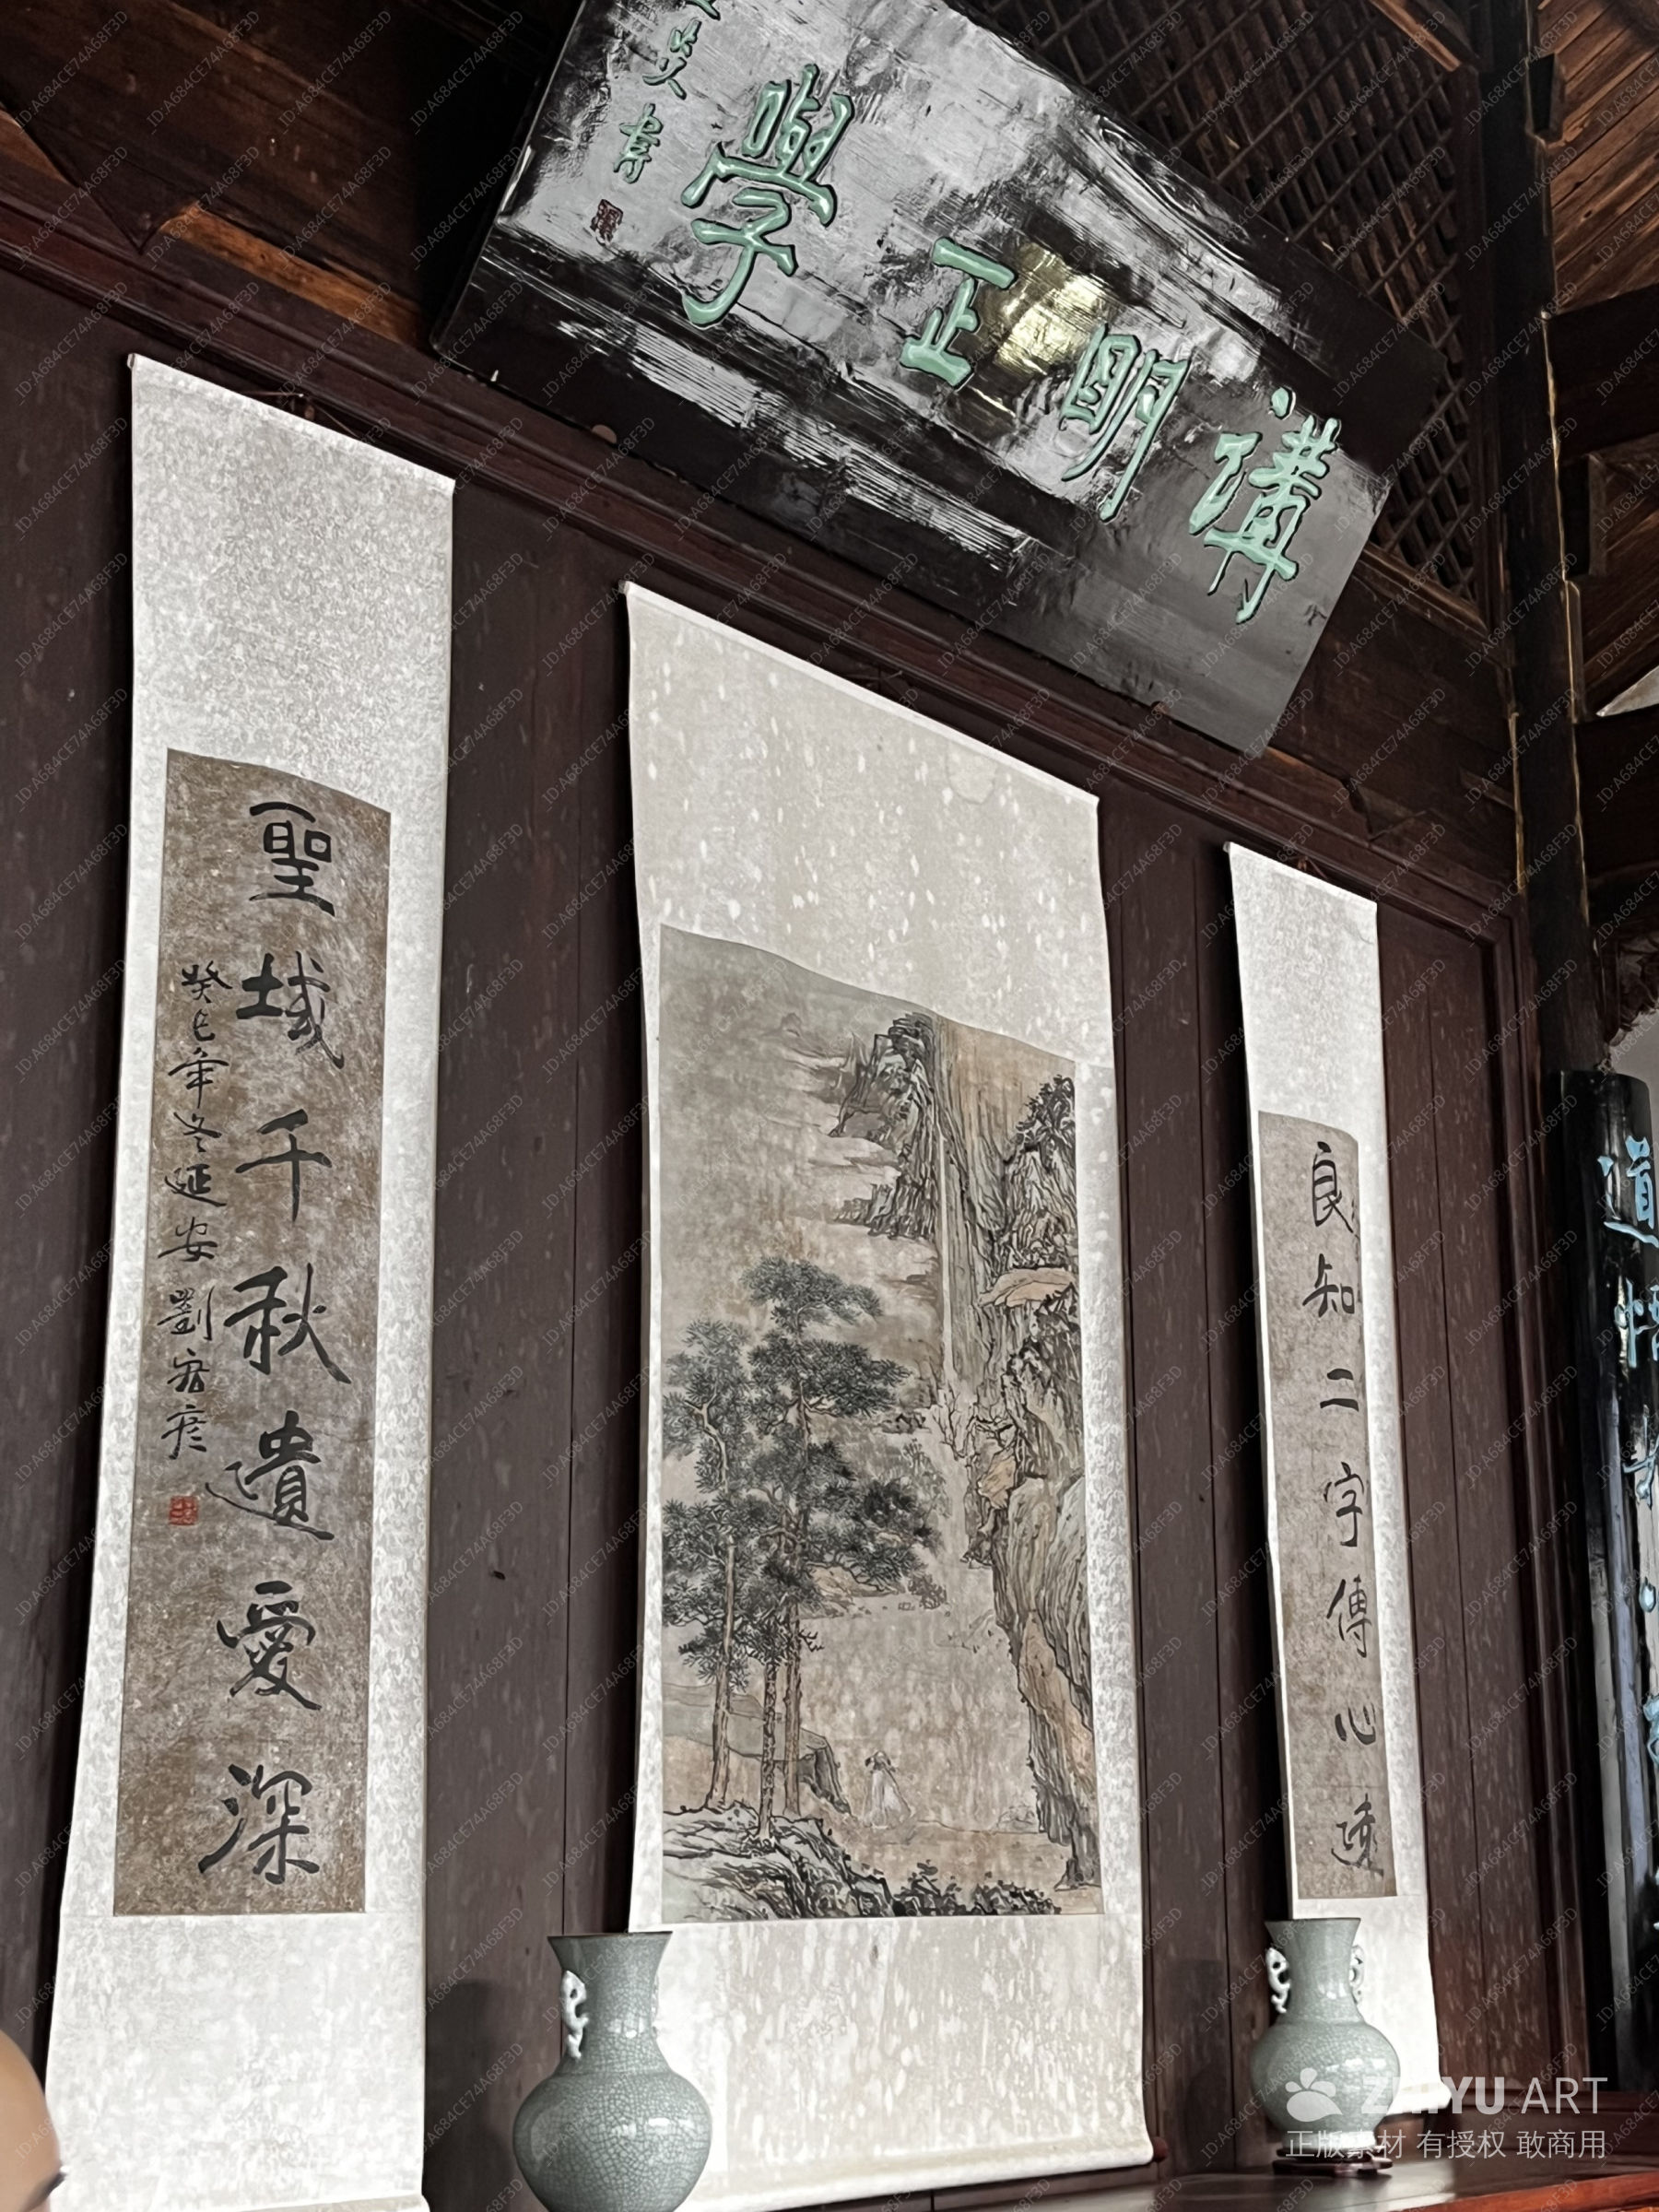 講明正學
良知二字傳心遠
聖域千秋遺愛深
癸巳年冬延安劉
道悟
ZHIYU ART
正版素材 有授权 敢商用
ID:A684CE74A68F3D